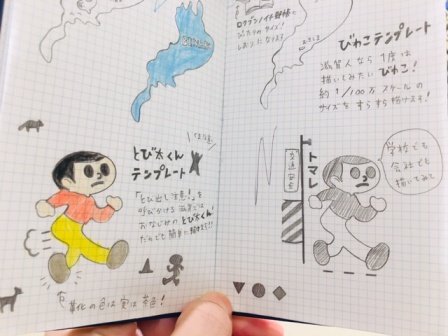 ロクブンノイチ野帳に
ぴったりのサイズ!
びわこテンプレート
滋賀人なら1度は
描いてみたいびわこ!
約1/100万スケールの
サイズをすらすら描けます!
とび太くん
テンプレート
「とび出し注意!」を
呼びかける
おなじみのとび太くん!
だれでも簡単に描けます!!
靴の色は実は茶色!
トマレ
学校でも
会社でも
描いてみて